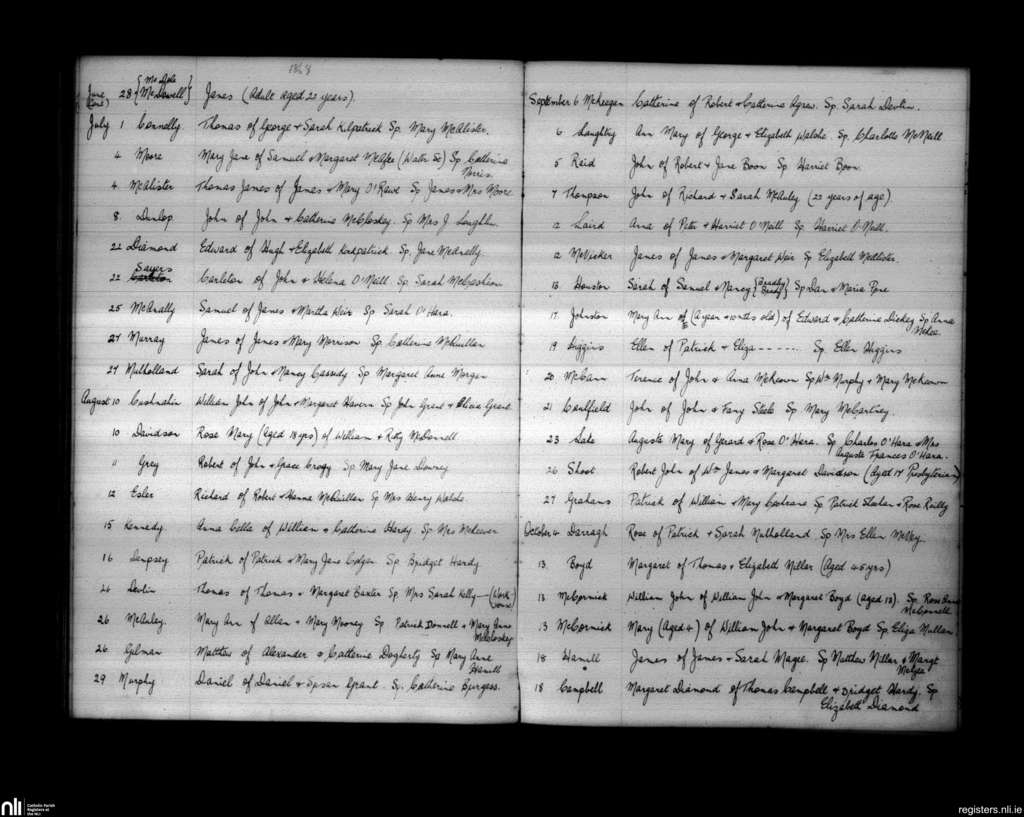 1868
June (cont) 28 {McDole McDowell} James (Adult aged 20 years).
July 1 Connelly. Thomas of George & Sarah Kilpatrick Sp. Mary McAlister.
4 Moore Mary Jane of Samuel & Margaret McAfee (Water St) Sp Catherine
Norris.
4 McAlister Thomas James of James & Mary O'Rawe Sp James & Mrs Moore.
8. Dunlop John of John & Catherine McCloskey. Sp Mrs J. Loughlin.
22 Diamond Edward of Hugh & Elizabeth Kirkpatrick. Sp. Jane McAnally.
22 Sayers Carleton of John & Helena O'Neill Sp Sarah McCashion
25 McAnally Samuel of James & Martha Weir Sp Sarah O'Hara.
27 Murray James of James & Mary Morrison Sp. Catherine McQuillan
27 Mulholland Sarah of John & Nancy Cassidy Sp Margaret Anne Morgan
August 10 Cushnahan William John of John & Margaret Havern Sp John Grant & Olivia Grant.
10 Davidson Rose Mary (Aged 18 yrs) of William & Kitty McConnell
11 Grey Robert of John & Grace Sp. Mary Jane Downey
12 Esler Richard of Robert & Hanna McQuillan Sp Mrs Henry Walsh.
15 Kennedy Anna Cella of William & Catherine Hardy Sp Mrs McKeever
16 Dempsey Patrick of Patrick & Mary Jane Sp Bridget Hardy
26 Devlin Thomas of Thomas & Margaret Baxter Sp Mrs Sarah Kelly (Work-
house)
26 McAuley. Mary Ann of Allan & Mary Mooney Sp Patrick Donnell & Mary Jane
McCloskey
26 Gilmar Matthew of Alexander & Catherine Dogherty Sp Mary Anne
Hamill
29 Murphy Daniel of Daniel & Susan Grant. Sp. Catherine Burgess.
September 6 McKeegan Catherine of Robert & Catherine Agnew. Sp. Sarah Devlin.
6 Loughtry Ann Mary of George & Elizabeth Walshe Sp. Charlotte McNeill
5 Reid John of Robert & Jane Boon Sp Harriet Boon.
7 Thompson John of Richard & Sarah McAuley (22 years of age).
12 Laird Anna of Peter & Harriet O'Neill Sp. Harriet O'Neill.
12 McVicker James of James & Margaret Weir Sp Elizabeth McAllister.
13 Houston Sarah of Samuel & Nancy {Bradley Brady} Sp Dan & Maria Pyne
17 Johnston Mary Ann of (A year & 10 mths old) of Edward & Catherine Dickey Sp Anna
McKee.
19 Higgins Ellen of Patrick & Eliza ------- Sp. Ellen Higgins
20 McCann Terence of John & Anna McKeown Sp Wm Murphy & Mary McKeown
21 Caulfield John of John & Fany Steele Sp Mary McCartney.
23 Lake Augusta Mary of Gerard & Rose O'Hara. Sp Charles O'Hara & Mrs
Augusta Frances O'Hara.
26 Shoot Robert John of Wm James & Margaret Davidson (Aged 17 Presbyterian)
27 Grahams Patrick of William & Mary Cochrane Sp Patrick & Rose Reilly
October 4 Darragh Rose of Patrick & Sarah Mulholland Sp Mrs Ellen McVey.
13 Boyd Margaret of Thomas & Elizabeth Millar (Aged 45 yrs)
13 McCormick William John of William John & Margaret Boyd (aged 13). Sp. Rose Anne
McConnell
13 McCormick Mary (Aged 4) of William John & Margaret Boyd Sp. Eliza Mullan
18 Hamill James of James & Sarah Magee. Sp Matthew Millar & Margt
McGee
18 Campbell Margaret Diamond of Thomas Campbell & Bridget Hardy. Sp
Elizabeth Diamond
nli Catholic Parish
Registers at
the NLI
registers.nli.ie